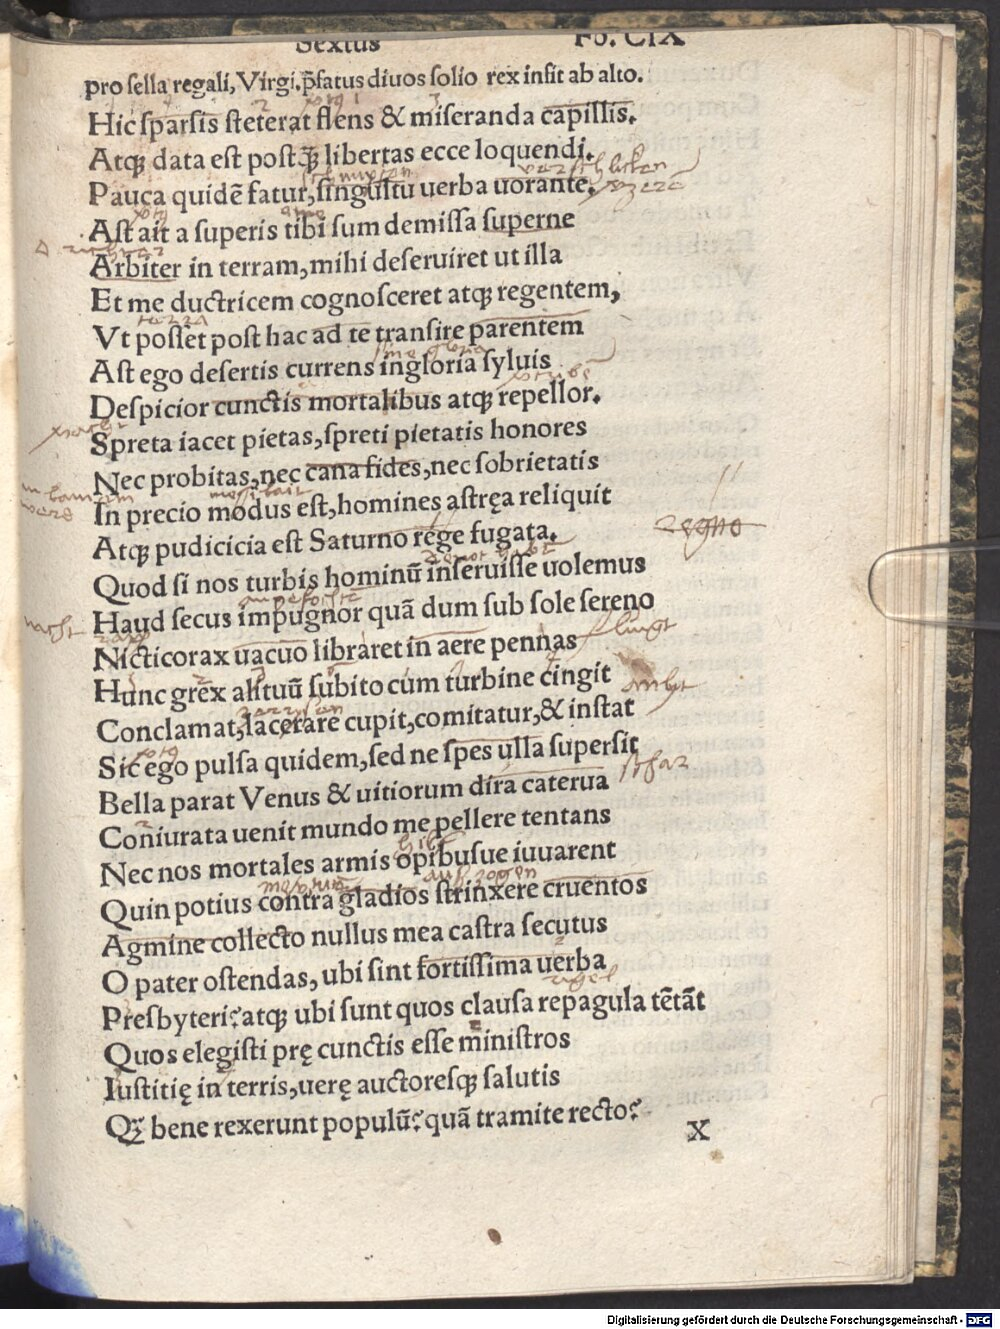 Sextus Fo. CIX
pro sella regali, Virgi. p̄fatus diuos solio rex infit ab alto.
Hic sparsis steterat flens & miseranda capillis.
Atqꝫ data est postq̄ꝫ libertas ecce loquendi.
Pauca quidē fatur, singultu uerba uorante.
Ast ait a superis tibi sum demissa superne
Arbiter in terram, mihi deseruiret ut illa
Et me ductricem cognosceret atqꝫ regentem,
Vt posset post hac ad te transire parentem
Ast ego desertis currens ingloria syluis
Despicior cunctis mortalibus atqꝫ repellor.
Spreta iacet pietas, spreti pietatis honores
Nec probitas, nec cana fides, nec sobrietatis
In precio modus est, homines astręa reliquit
regno
Atqꝫ pudicicia est Saturno rege fugata.
Quod si nos turbis hominū inseruisse uolemus
Haud secus impugnor quā dum sub sole sereno
Nicticorax uacuo libraret in aere pennas
Hunc grex alituū subito cum turbine cingit
Conclamat, lacerare cupit, comitatur, & instat
Sic ego pulsa quidem, sed ne spes ulla supersit
Bella parat Venus & uitiorum dira caterua
Coniurata uenit mundo me pellere tentans
Nec nos mortales armis opibusue iuuarent
Quin potius contra gladios strinxere cruentos
Agmine collecto nullus mea castra secutus
O pater ostendas, ubi sint fortissima uerba
Presbyteri? atqꝫ ubi sunt quos clausa repagula tētāt
Quos elegisti prę cunctis esse ministros
Iustitię in terris, uerę auctoresqꝫ salutis
Qꝫ bene rexerunt populū? quā tramite recto?
X
Digitalisierung gefördert durch die Deutsche Forschungsgemeinschaft - DFG